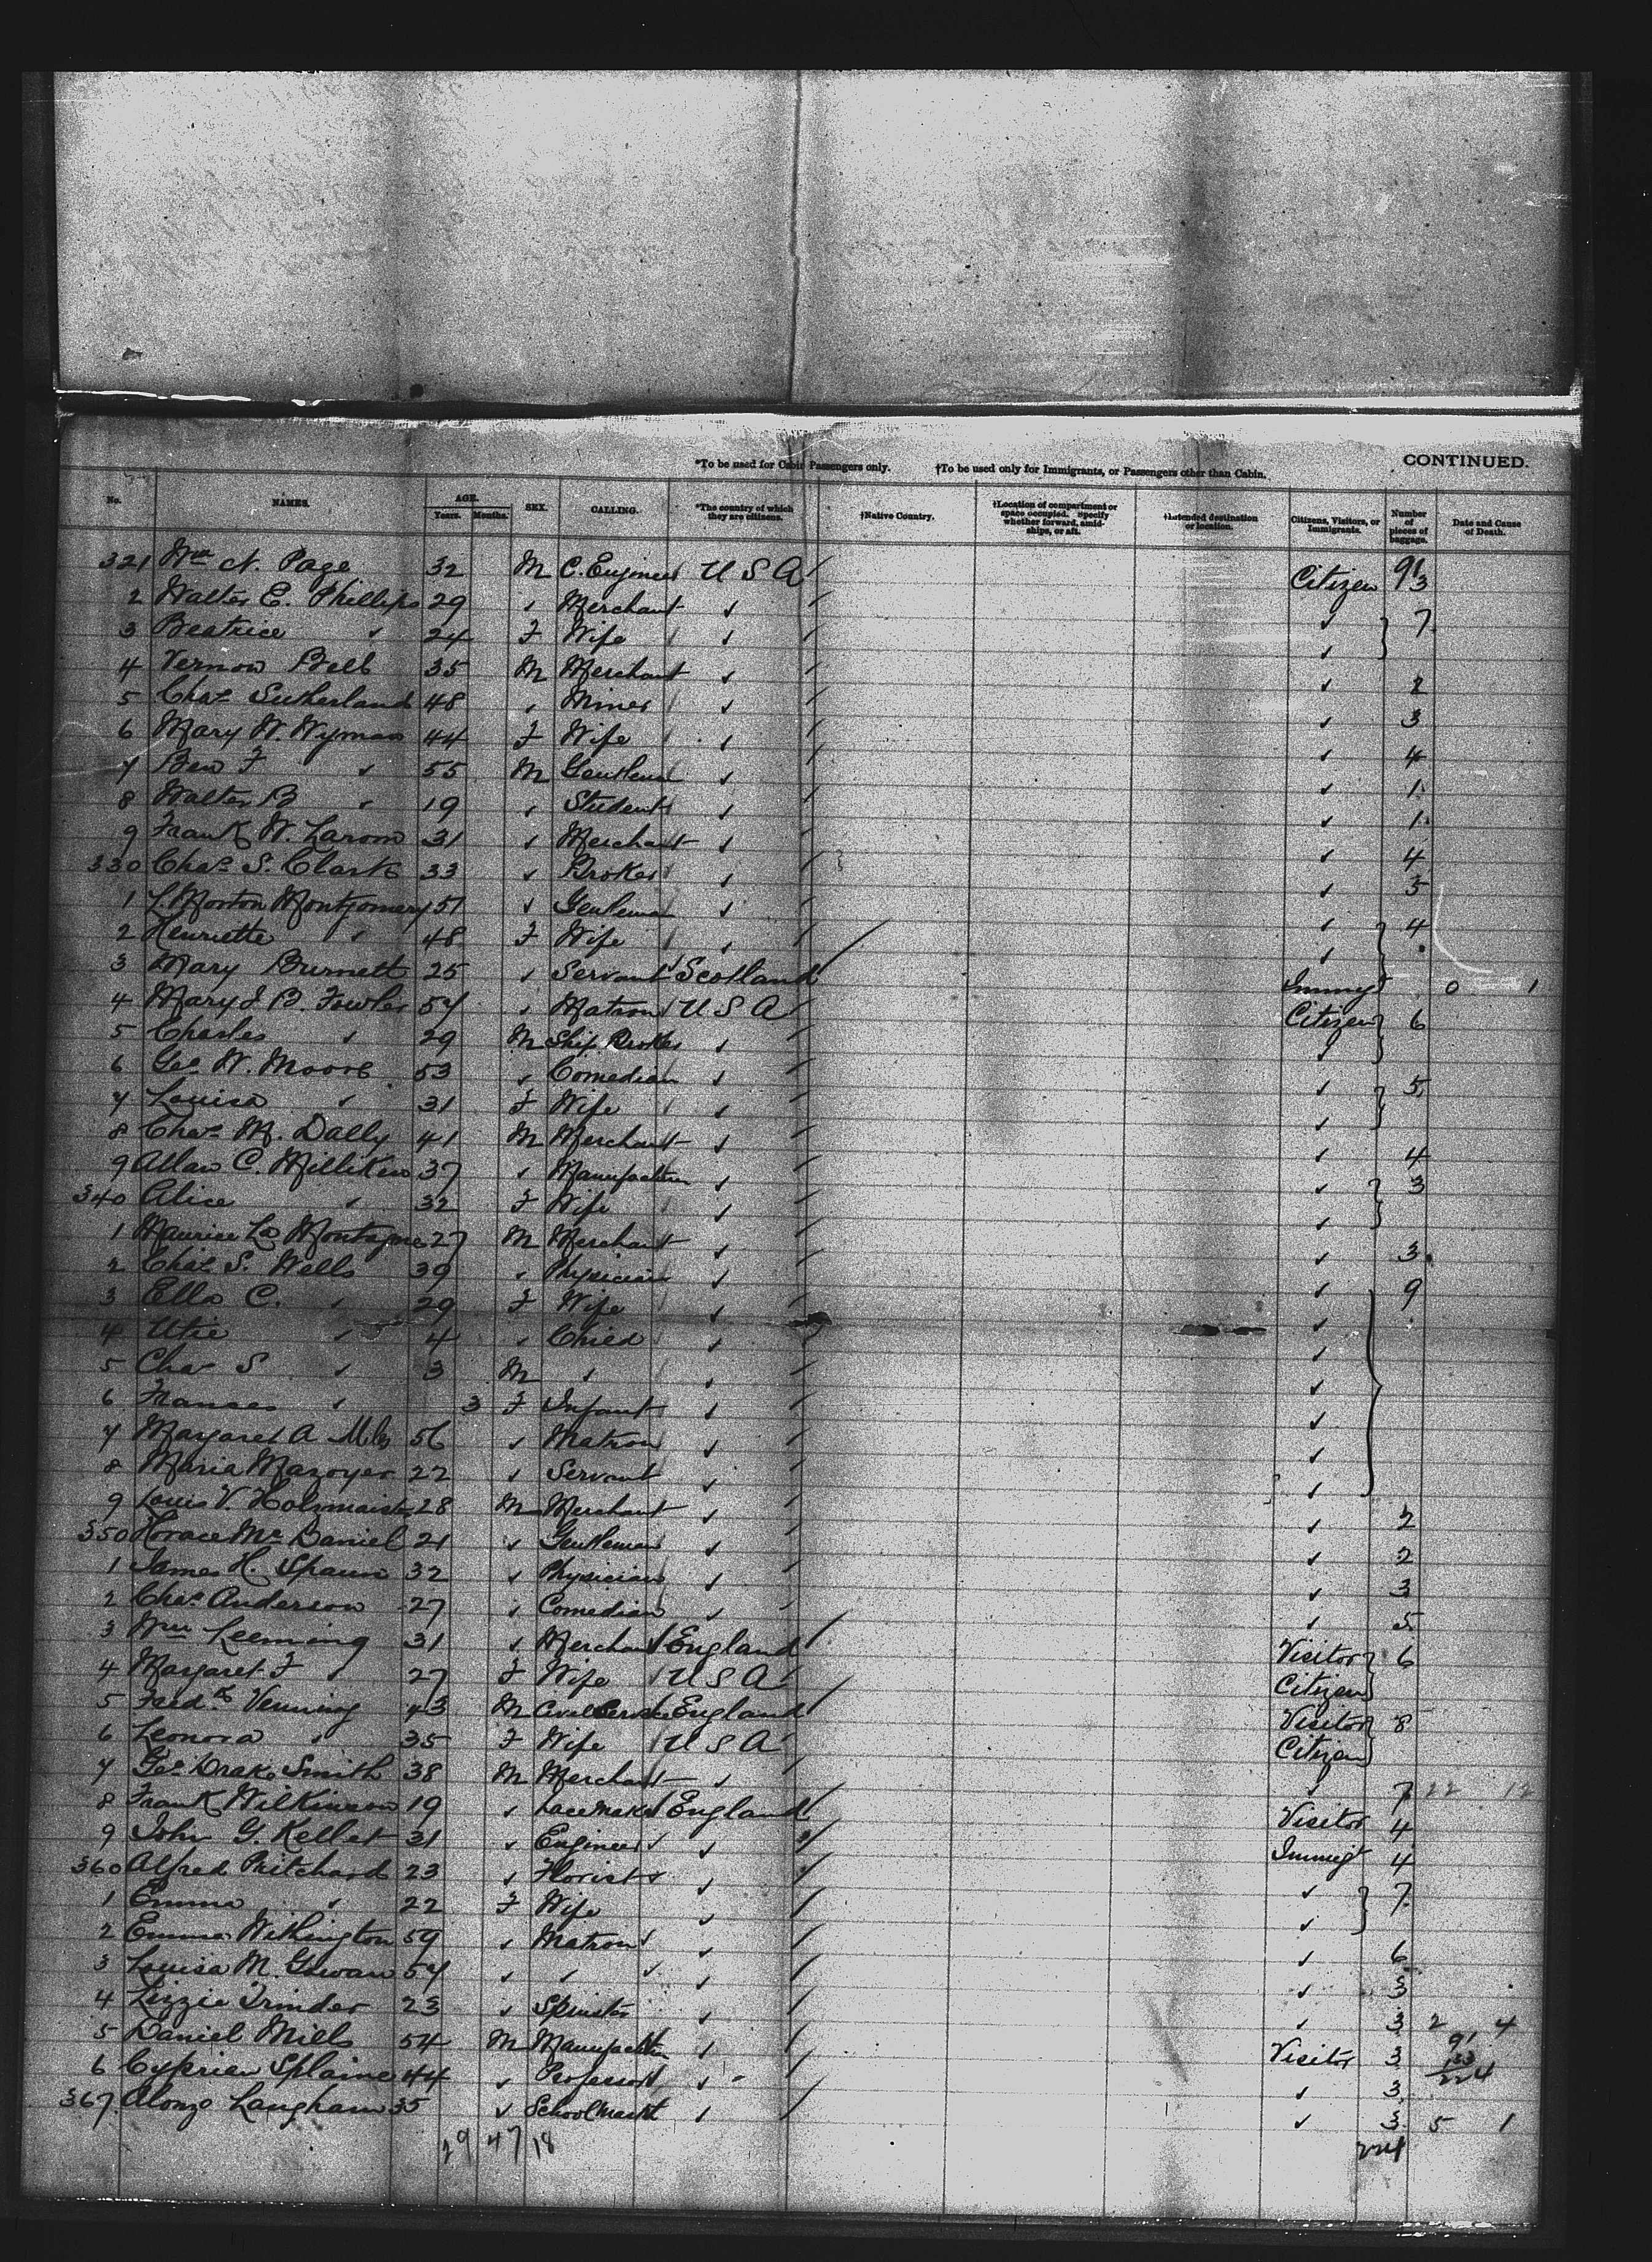 *To be used for Cabin Passengers only. †To be used only for Immigrants, or Passengers other than Cabin. CONTINUED.
No. NAMES. AGE. Years. Months. SEX. CALLING. *The country of which they are citizens. †Native Country. †Location of compartment or space occupied. Specify whether forward, amidships, or aft. †Intended destination or location. Citizens, Visitors, or Immigrants. Number of pieces of baggage. Date and Cause of Death.
91
321 Wm N. Page 32 M C. Engineer U S A Citizen 3
2 Walter E. Phillips 29 " Merchant " " 7
3 Beatrice " 24 F Wife " "
4 Vernon Bell 35 M Merchant " " 2
5 Chas Sutherland 48 " Miner " " 3
6 Mary W. Wyman 44 F Wife " " 4
7 Ben F " 55 M Gentleman " " 1
8 Walter B " 19 " Student " " 1
9 Frank W. Larom 31 " Merchant " " 4
330 Chas S. Clark 33 " Broker " " 5
1 L. Morton Montgomery 51 " Gentleman " " 4
2 Henriette " 48 F Wife " "
3 Mary Burnett 25 " Servant Scotland Immigt 0 1
4 Mary J. B. Fowler 57 " Matron U S A Citizen 6
5 Charles " 29 M Ship Broker " "
6 Geo W. Moore 53 " Comedian " " 5
7 Louisa " 31 F Wife " "
8 Chas M. Dally 41 M Merchant " " 4
9 Allan C. Milliken 37 " Manufacturer " " 3
340 Alice " 32 F Wife " "
1 Maurice La Montagne 27 M Merchant " " 3
2 Chas S. Wells 39 " Physician " " 9
3 Ella C. " 29 F Wife " "
4 Utie " 4 " Child " "
5 Chas S " 3 M " " "
6 Frances " 3 F Infant " "
7 Margaret A 56 " Matron " "
8 Maria Mazoyer 22 " Servant " "
9 Louis V. 28 M Merchant " " 2
350 Horace Mc Daniel 21 " Gentleman " " 2
1 James H. Spann 32 " Physician " " 3
2 Chas Anderson 27 " Comedian " " 5
3 Wm Leeming 31 " Merchant England Visitor 6
4 Margaret F " 27 F Wife U S A Citizen
5 Fredk Venning 43 M Civil Service England Visitor 8
6 Leonora " 35 F Wife U S A Citizen
7 Geo Drake Smith 38 M Merchant " " 7 22 12
8 Frank Wilkinson 19 " Lace Maker England Visitor 4
9 John G. Kellet 31 " Engineer " Immigt 4
360 Alfred Pritchard 23 " Florist " " 7
1 Emma " 22 F Wife " "
2 Emma Withington 59 " Matron " " 6
3 Louisa M. Gowan 57 " " " " 3
4 Lizzie Trinder 23 " Spinster " " 3 2 4
5 Daniel Mills 54 M Manufacturer " Visitor 3 91
6 Cyprian Splaine 44 " Professor " " 3 133 224
367 Alonzo Langham 35 " School Mastr " " 3 5 1
29 47 18 224